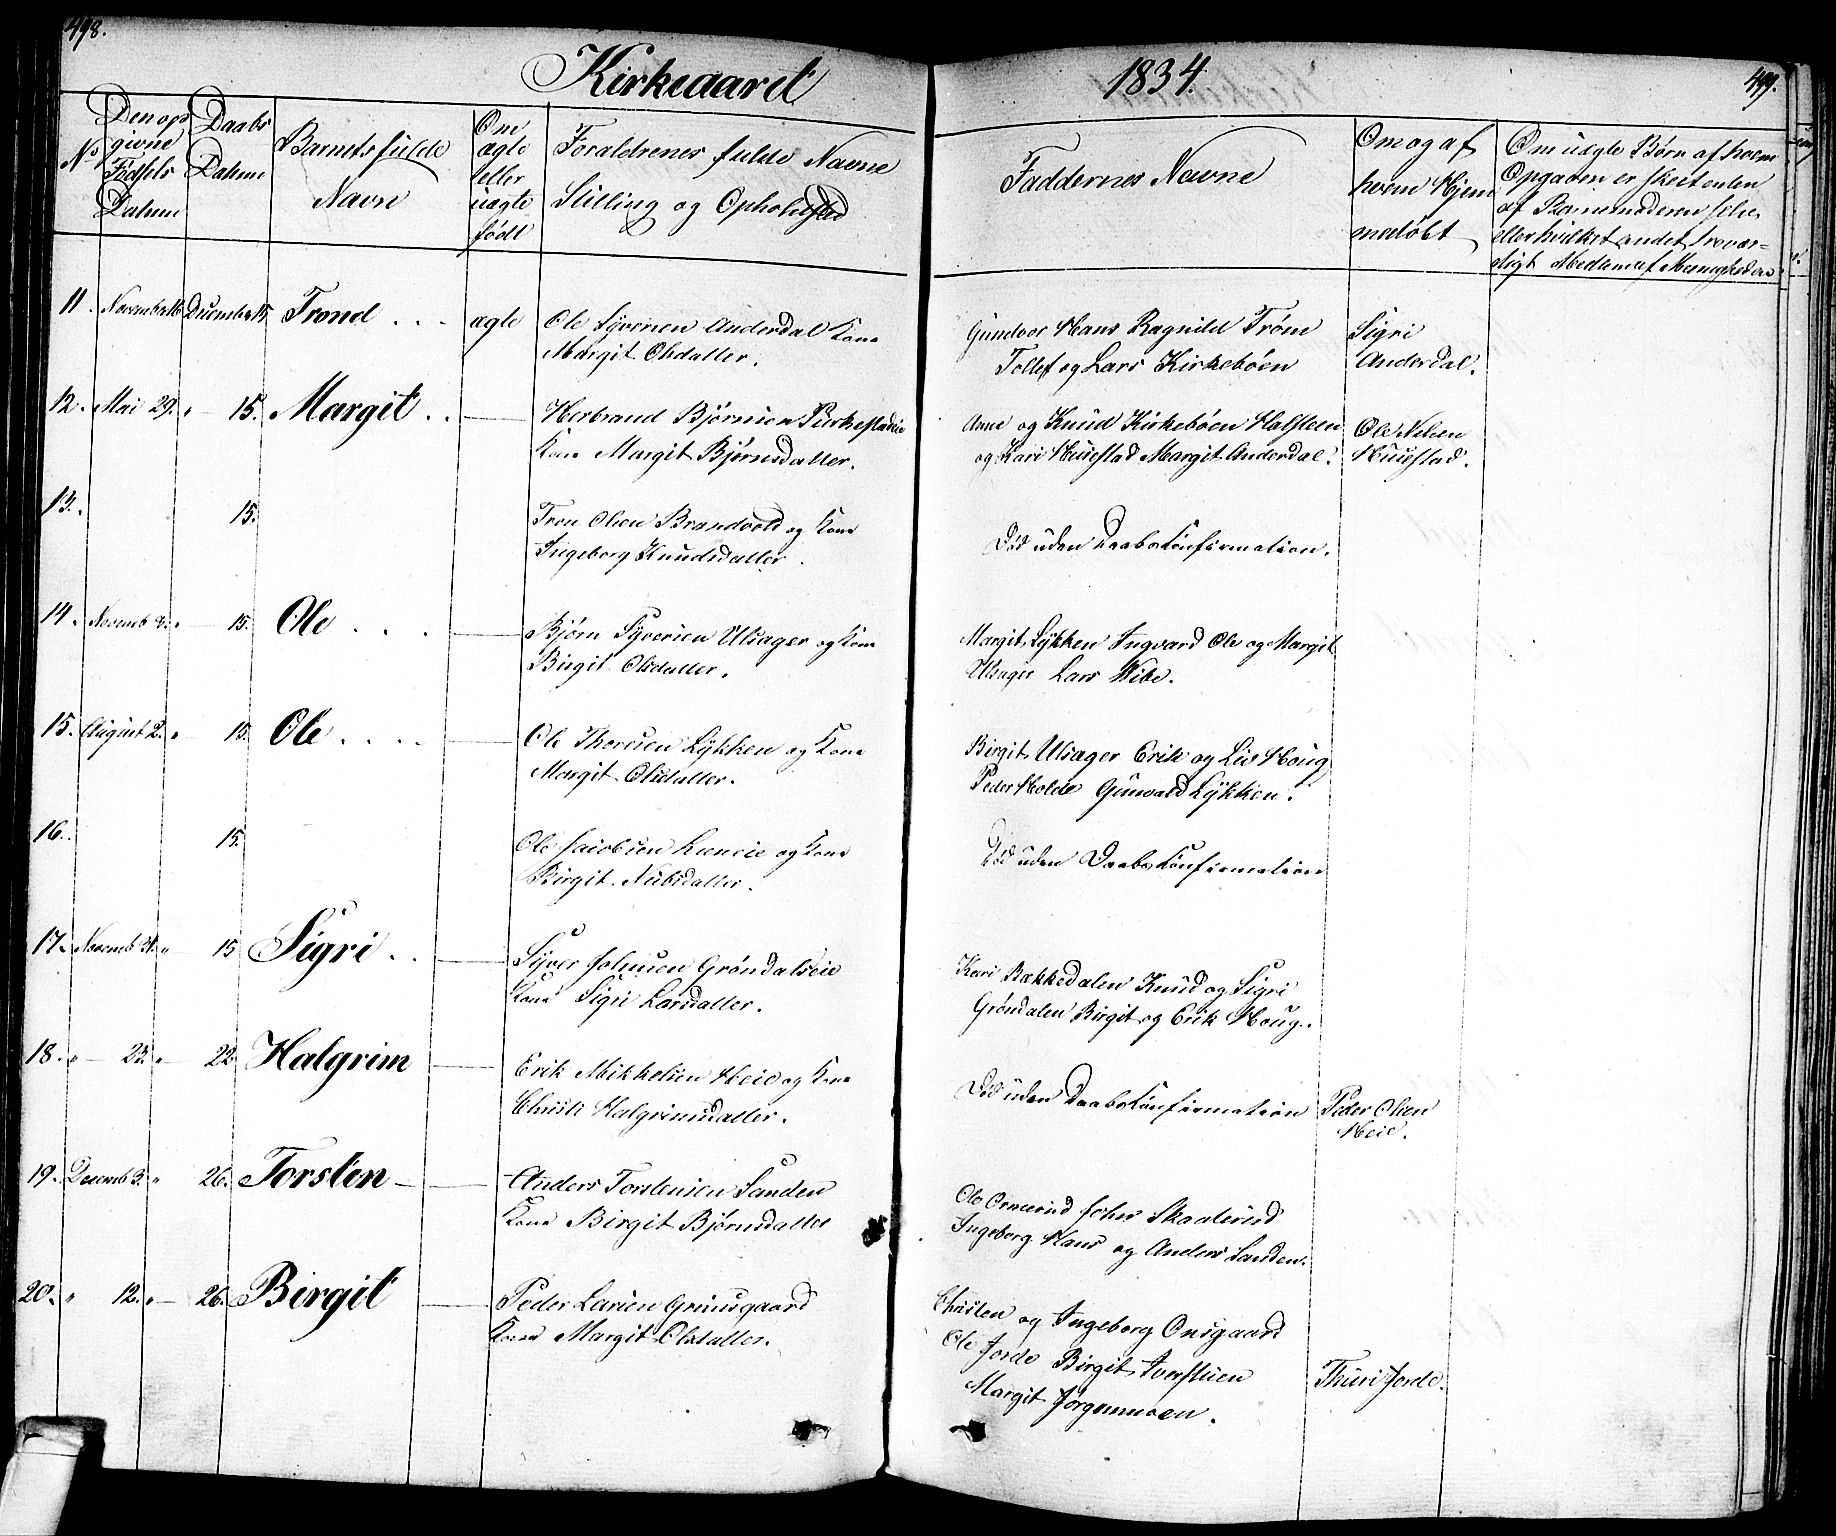 498.
Kirkeaaret
1834.
499.
No
Den op
givne
Fødsels
Datum
Daabs
Datum
Barnets fulde
Navn
Om
ægte
eller
uægte
født
Forældrenes fulde Navne
Stilling og Opholdsted
Faddernes Navne
Om og af
hvem Hjem
medøbt
Om uægte Børn af hvem
Opgaven er skeet enten
af Barnemoderen selv
eller hvilket andet trovær-
digt Medlem af Menigheden
11. Novemb 16 Decemb 15. Trond . . . ægte
Ole Syversen Anderdal Kone
Margit Olsdatter.
Gundvor Hans Ragnild Trøm
Tollef og Lars Kirkebøen
Sigri
Anderdal.
12. Mai 29. „ — 15. Margit . .
Herbrand Bjørnsen
Kone Margit Bjørnsdatter.
Anne og Knud Kirkebøen Halsteen
og Kari Huustad Margit Anderdal.
Ole Nilsen
Huustad.
13. 15.
Tron Olsen Brandvold og Kone
Ingeborg Knudsdatter.
Død uden Daabs Confirmation.
14. Novemb „ — 15. Ole . . .
Bjørn Syversen Ulsager og Kone
Birgit Olsdatter.
Margit Lykken Ingvard Ole og Margit
Ulsager Lars Wibe.
15. August 2. „ — 15. Ole . . . .
Ole Thoresen Lykken og Kone
Margit Olsdatter.
Birgit Ulsager Erik og Liv Houg
Peder Holde Gunvald Lykken.
16. 15.
Ole Jacobsen og Kone
Birgit Nubsdatter.
Død uden Daabs Confirmation
17. Novemb „ 15 Sigri . .
Syver Johnsen Grøndalseie
Kone Sigri Larsdatter.
Kari Bakkedalen Knud og Sigri
Grøndalen Birgit og Erik Houg.
18. „ — 23. „ — 22. Halgrim
Erik Mikkelsen Heie og Kone
Christi Halgrimsdatter.
Død uden Daabs Confirmation
Peder Olsen
Heie.
19. Decemb 3. „ 26. Torsten —
Anders Torstensen Sanden
Kone Birgit Bjørnsdatter
Ole John Skaalerud
Ingeborg Hans og Anders Sanden.
20. „ 12. „ — 26. Birgit
Peder Larsen Grimsgaard
Kone Margit Olsdatter.
Christen og Ingeborg Onsgaard
Ole Jorde Birgit
Margit Jørgenmoen.
Thuri Jorde.